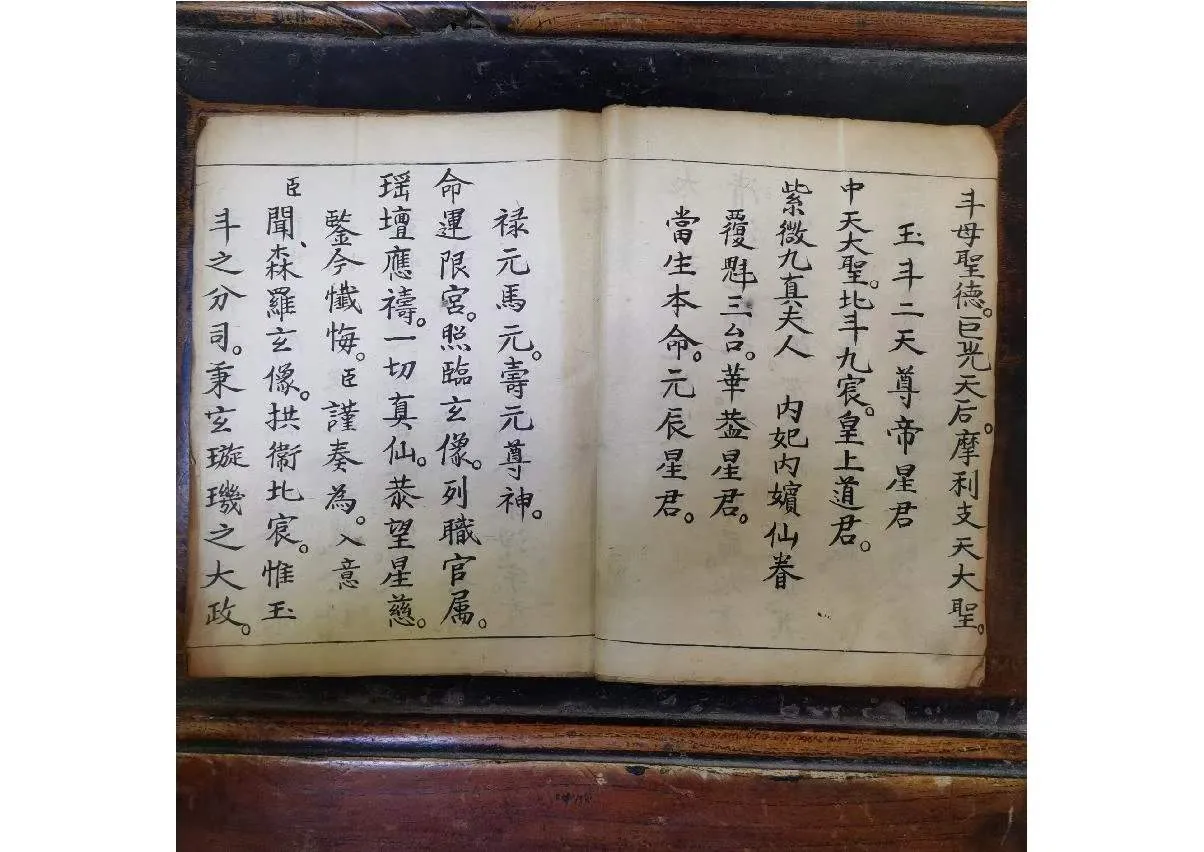 斗母聖德。巨光天后。摩利支天大聖。
玉斗二天尊帝星君
中天大聖。北斗九宸。皇上道君。
紫微九真夫人　内妃内嬪仙眷
覆魁三台。華蓋星君。
當生本命。元辰星君。
禄元馬元。壽元尊神。
命運限宮。照臨玄像。列職官属。
瑶壇應禱。一切真仙。恭望星慈。
鑒今懺悔。臣謹奏為。入意
臣聞、森羅玄像。拱衛北宸。惟玉
斗之分司。秉玄璇璣之大政。